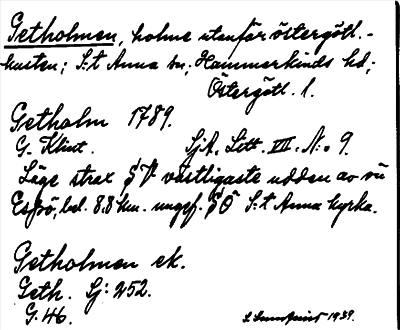 Getholmen, holme utanför östergötl.-
kusten; S:t Anna sn; Hammarkinds hd;
Östergötl. l.
Getholm 1789.
G. Klint. SjA. Litt. VII. N:o 9.
Läge strax SV västligaste udden av
Espö, bel. 8.8 km. ungef. SÖ S:t Anna kyrka.
Getholmen ek.
Geth. Gj: 252.
G. 46.
1939.